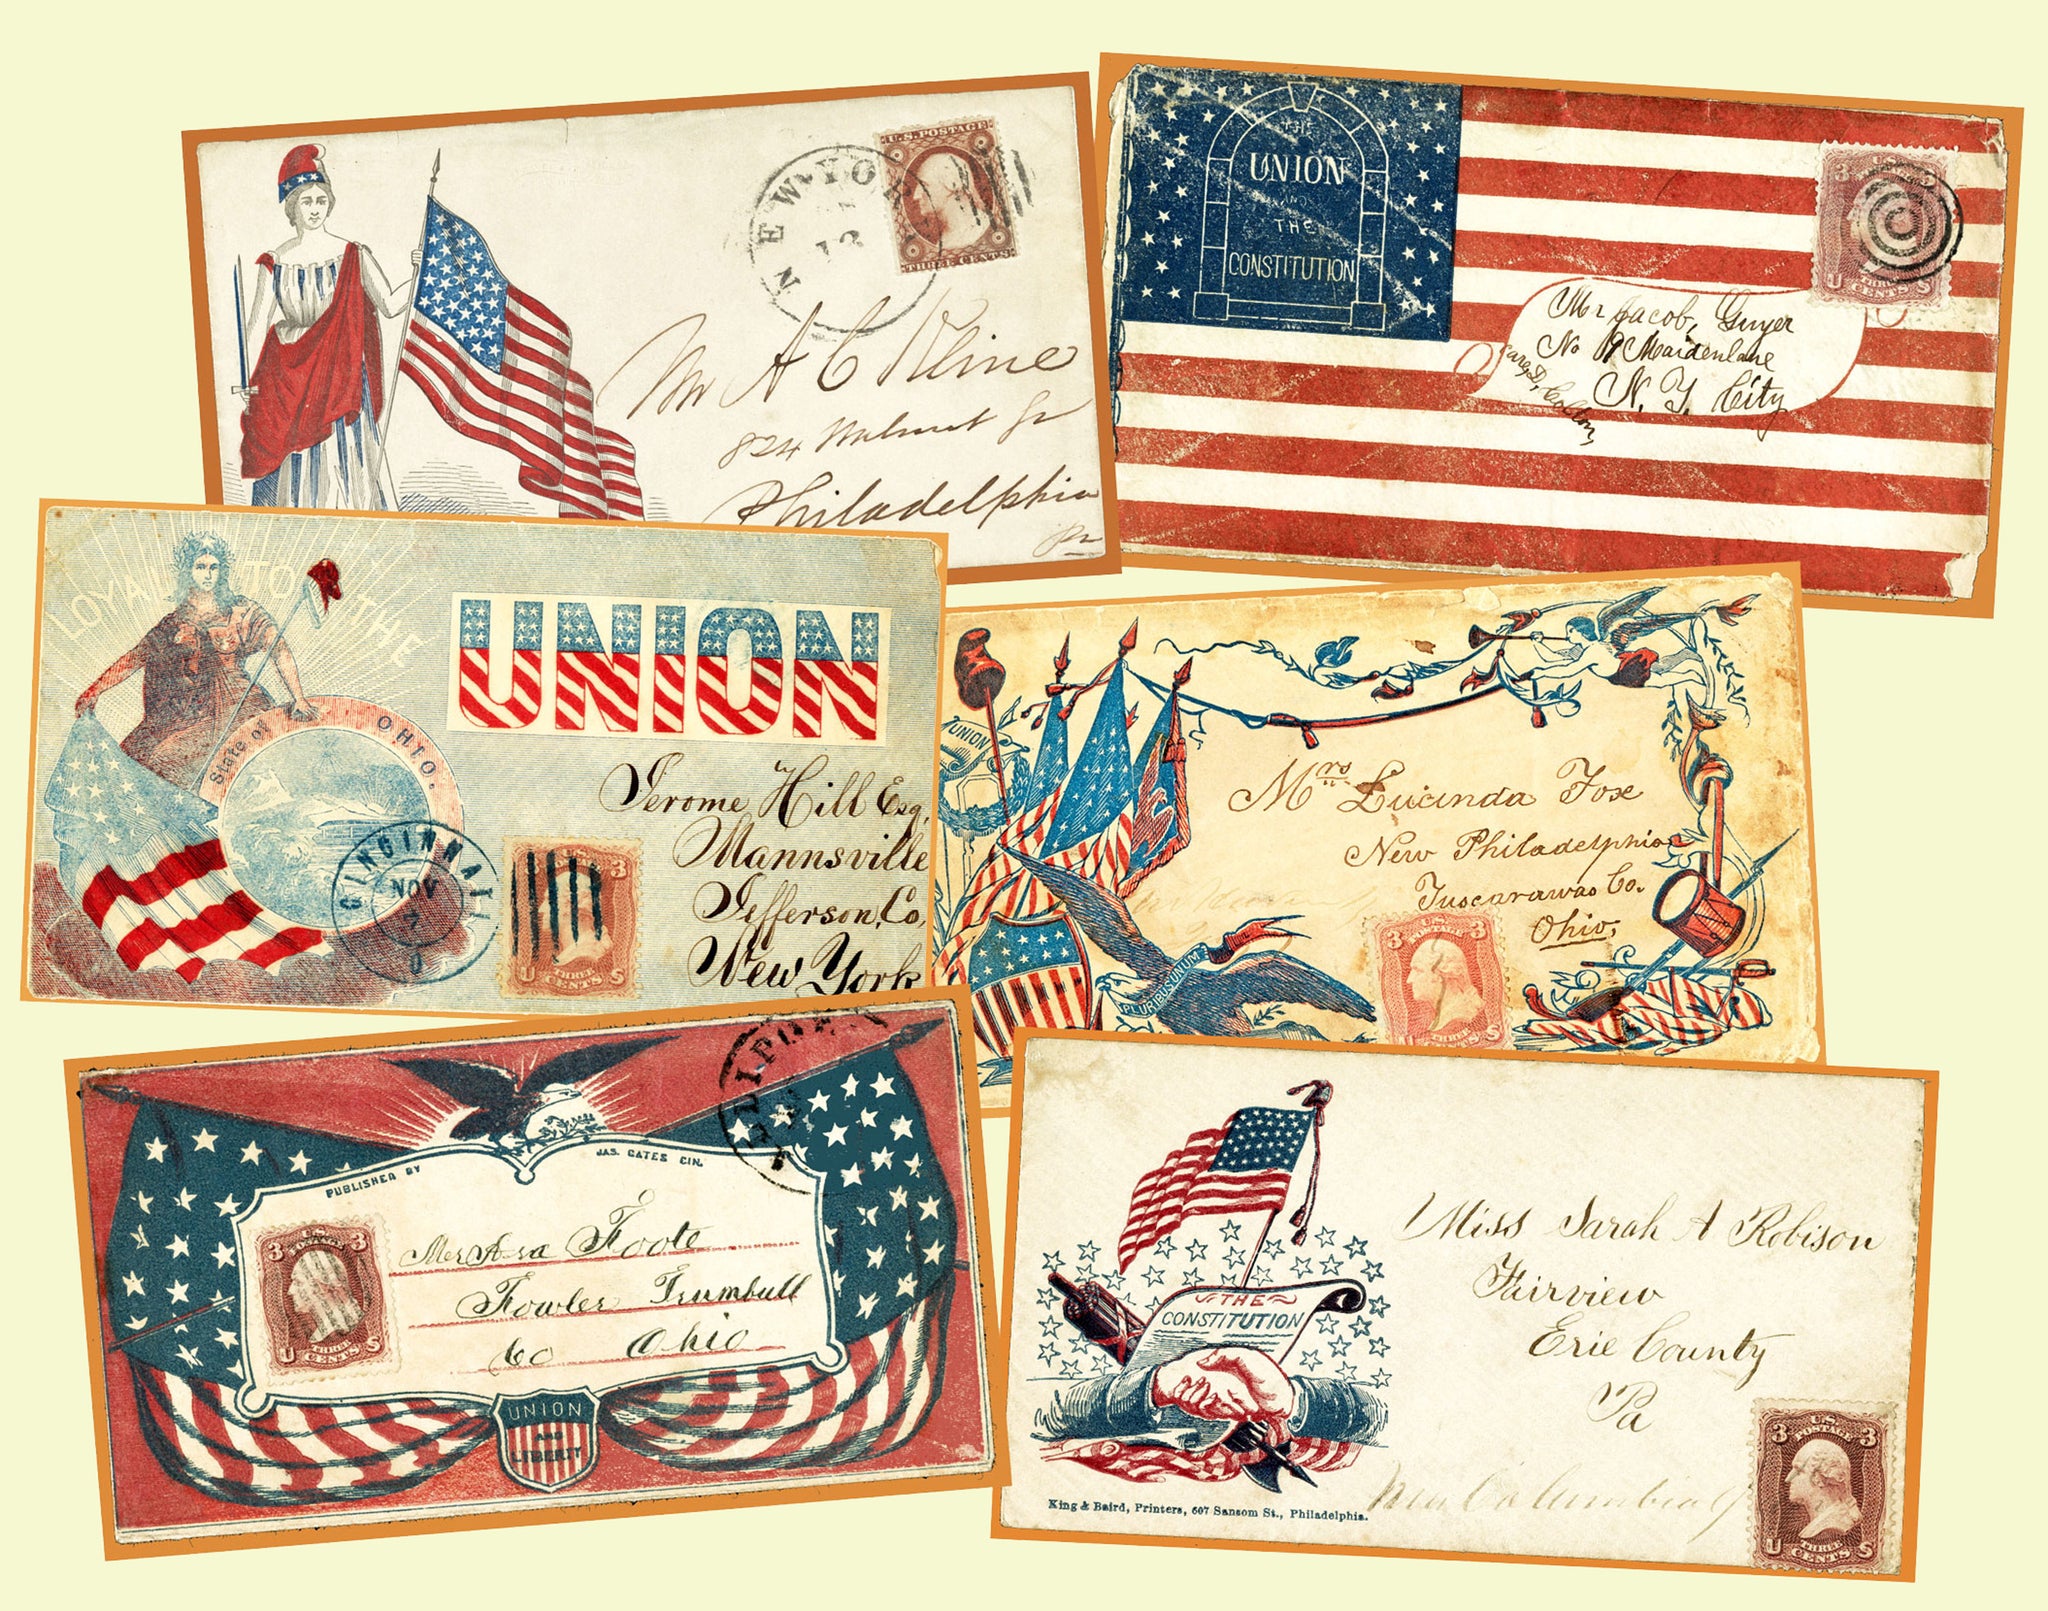 U.S. POSTAGE
THREE CENTS
NEW YO
13
Mr A C Kline
824 Walnut St
Philadelphia
Pa
THE
UNION
AND
THE
CONSTITUTION
3
U
CENTS S
Mr Jacob, Guyer
No 19 Maidenlane
N. Y. City
LOYAL TO THE
UNION
State of OHIO.
CINCINNATI
NOV
7
Jerome Hill Esq,
Mannsville
Jefferson, Co,
New York
3
U THREE S
CENTS
UNION
Mrs Lucinda Fox
New Philadelphia
Tuscarawas Co.
Ohio,
PLURIBUS UNUM
3 3
PUBLISHED BY JAS. GATES CIN.
3 U.S. 3
POSTAGE
U THREE S
CENTS
Asa Foote
Fowler Trumbull
Co Ohio
UNION
AND
LIBERTY
THE
CONSTITUTION
King & Baird, Printers, 607 Sansom St., Philadelphia.
Miss Sarah A Robison
Fairview
Erie County
Pa
3 U.S. 3
POSTAGE
U THREE S
CENTS